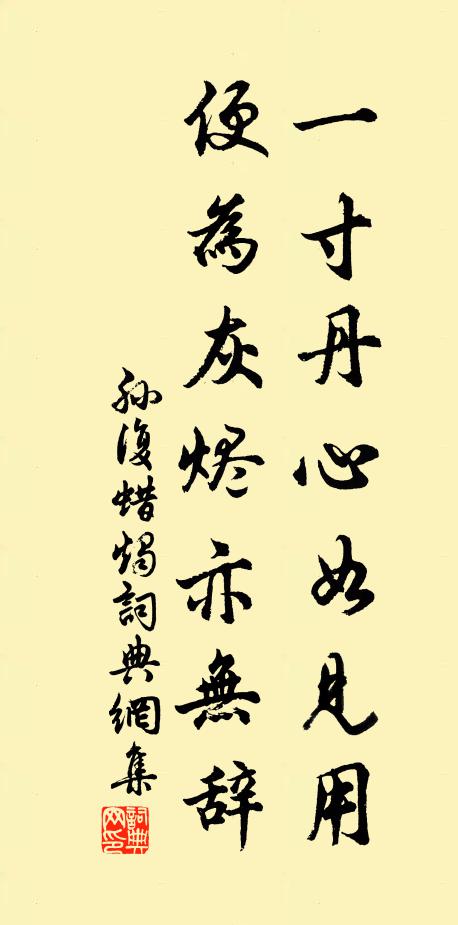 一寸丹心如見用
便為灰烬亦無辞
孙復蜡燭詞典網集
詞典网印